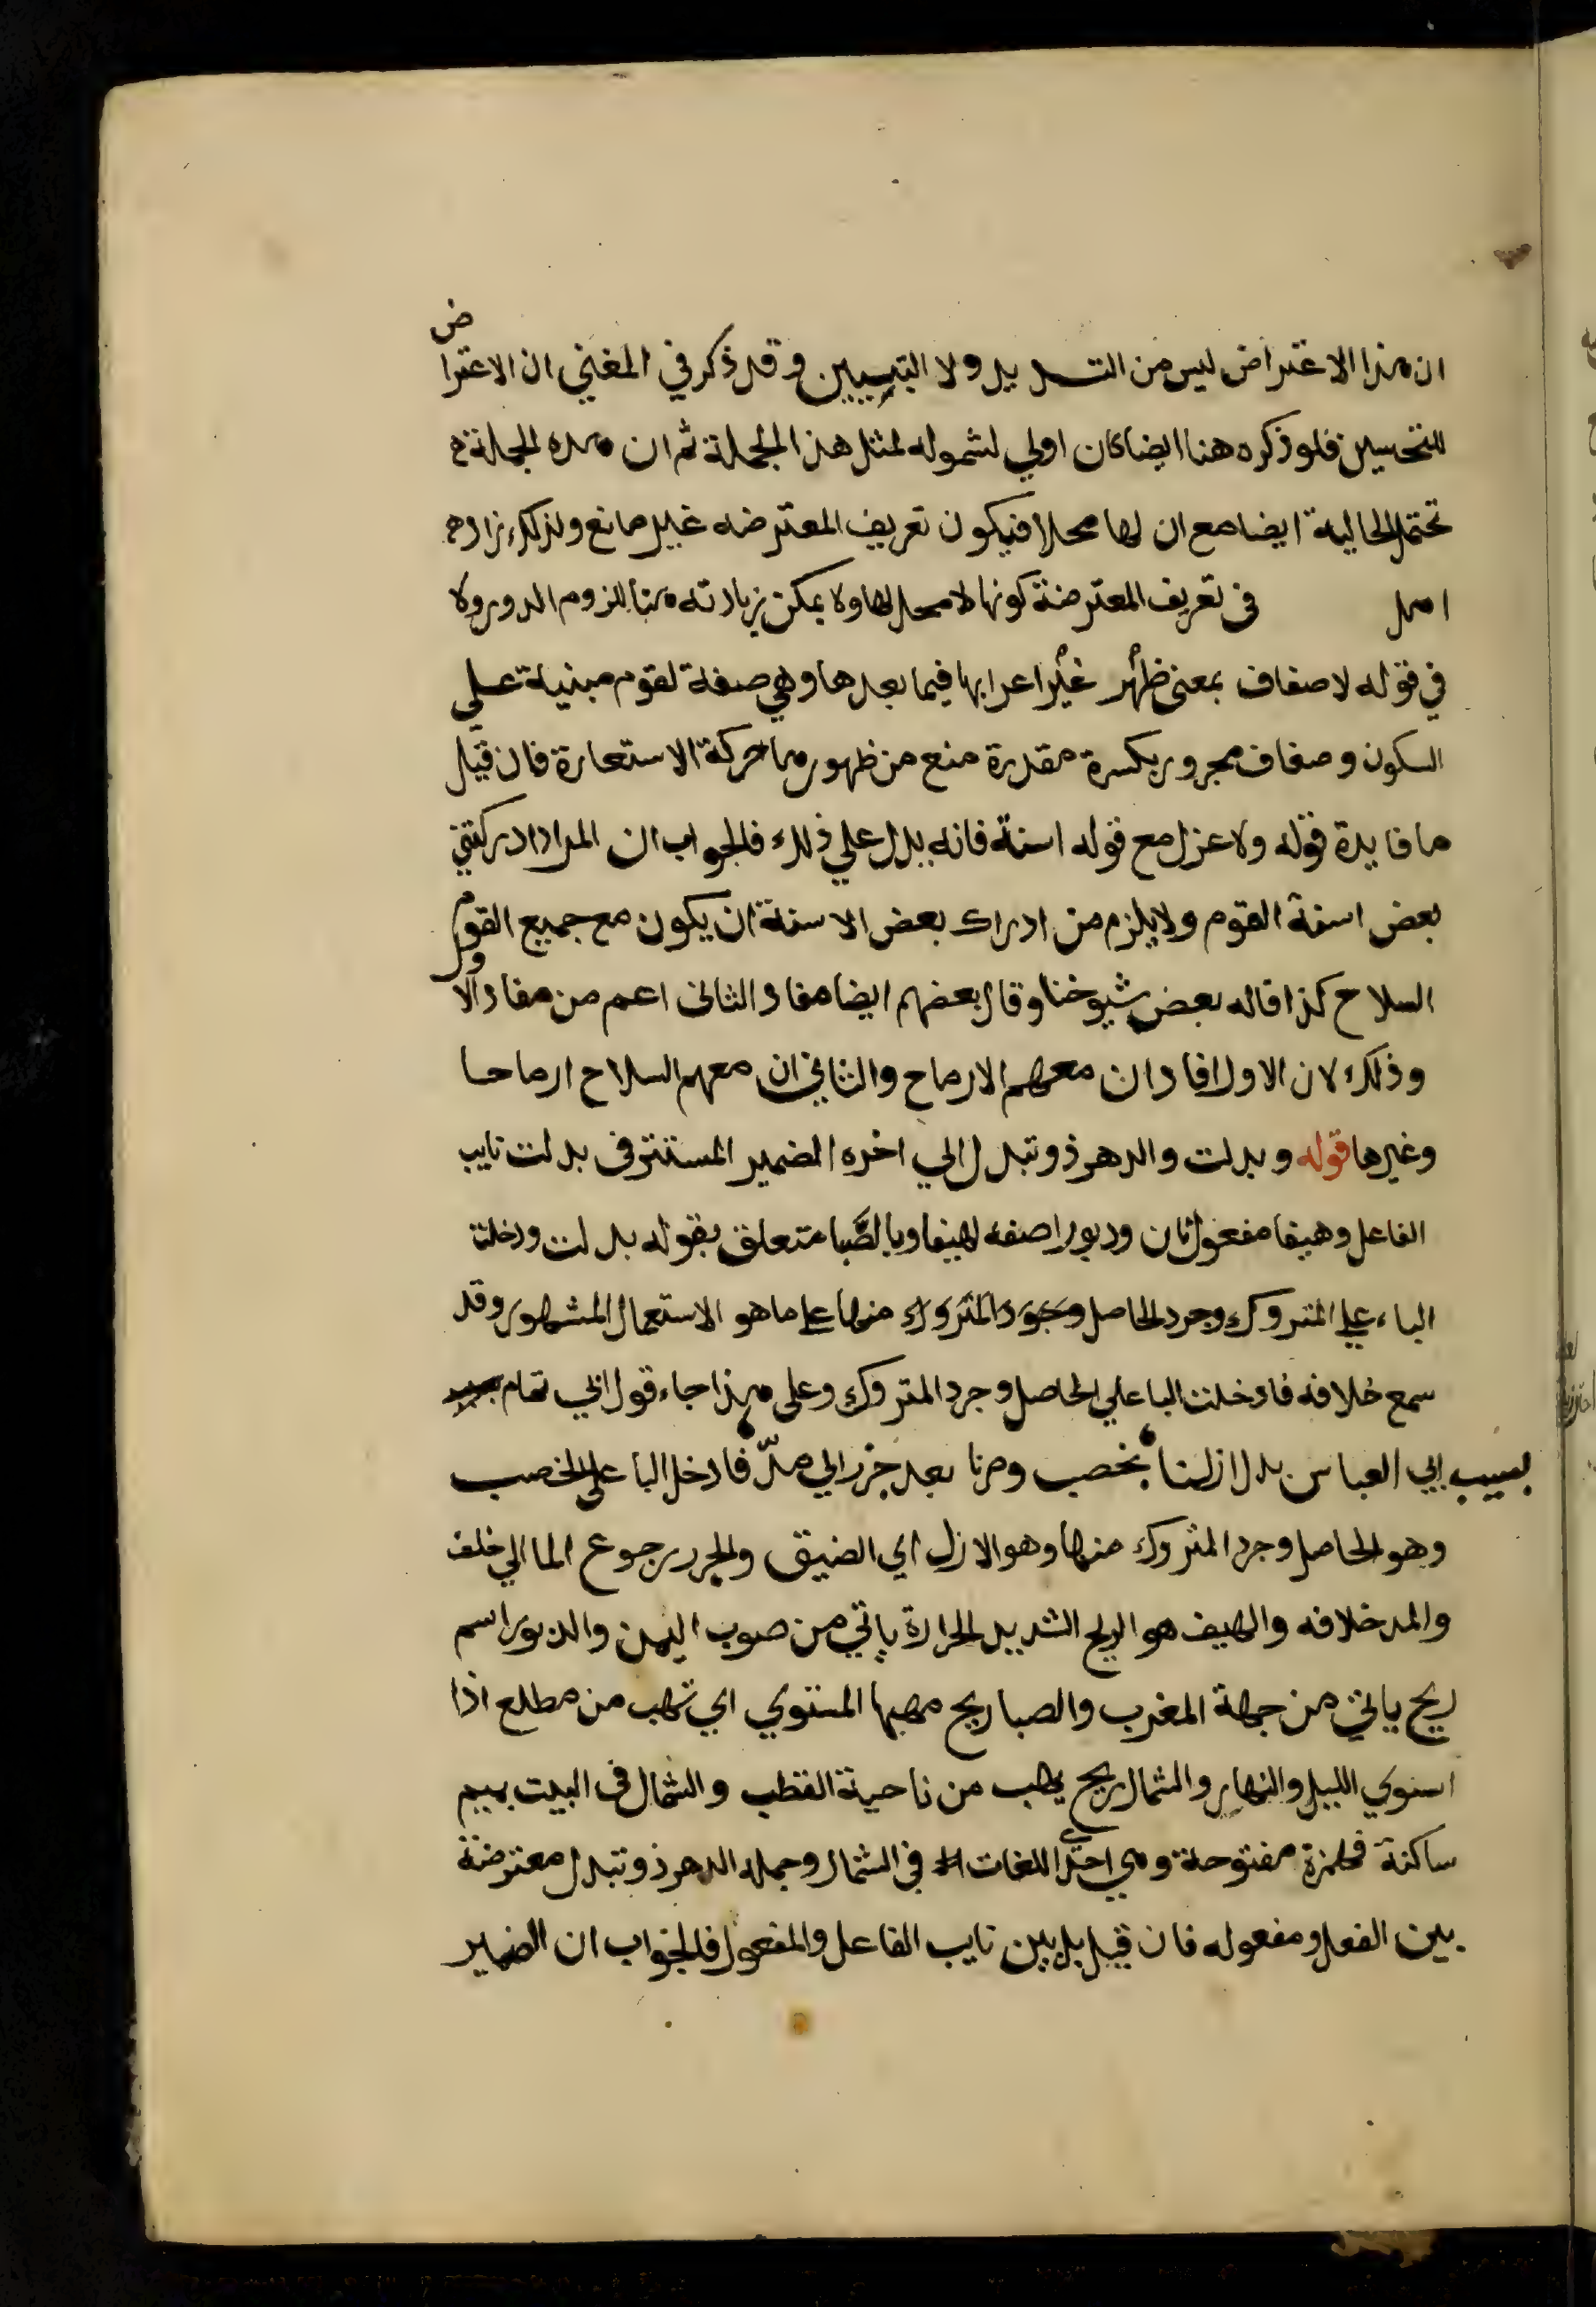 ان هذا الاعتراض ليس من التسديد ولا التبيين وقد ذكر في المغني ان الاعتراض
للتحسين فلو ذكره هنا ايضا كان اولي لشموله لمثل هذا الجملة ثم ان هذه الجملة
تحتمل الحالية ايضا مع ان لها محلا فيكون تعريف المعترضه غير مانع ولذلك زاده
اصل في تعريف المعترضة كونها لا محل لها ولا يمكن زيادته هنا للزوم الدور ولا
في قوله لا ضعاف بمعنى ظهر غير اعرابها فيما بعدها وهي صفة لقوم مبنية علي
السكون وضعاف مجرور بكسرة مقدرة منع من ظهورها حركة الاستعارة فان قيل
ما فايدة قوله ولا عزل مع قوله اسنة فانه يدل علي ذلك فالجواب ان المراد ادركتني
بعض اسنة القوم ولا يلزم من ادراك بعض الاسنة ان يكون مع جميع القوم
السلاح كذا قاله بعض شيوخنا وقال بعضهم ايضا مفاد الثاني اعم من مفاد الاول
وذلك لان الاول افاد ان معهم الارماح والثاني ان معهم السلاح ارماحا
وغيرها قوله وبدلت والدهر ذو تبدل الي اخره الضمير المستتر في بدلت نايب
الفاعل وهيفا مفعول ثان ودبورا صفه لهيفا وبالصَّبا متعلق بقوله بدلت ودخلت
الباء علي المتروك وجرد الحاصل وجود المتروك منها علي ما هو الاستعمال المشهور وقد
سمع خلافه فادخلت البا علي الحاصل وجرد المتروك وعلى هذا جاء قول ابي تمام
لسيب ابي العباس بدل ازلنا بخصب وصرنا بعد جزر الي مدّ فادخل البا علي الخصب
وهو الحاصل وجرد المتروك منها وهو الازل اي الضيق والجزر رجوع الما الي خلف
والمد خلافه والهيف هو الريح الشديد الحرارة ياتي من صوب اليمن والدبور اسم
ريح ياتي من جهة المغرب والصبا ريح مهبها المستوي اي تهب من مطلع اذا
استوي الليل والنهار والشمال ريح يهب من ناحية القطب والشمال في البيت بميم
ساكنة فهمزة مفتوحة وهي احدي اللغات في الشمال وجملة الدهر ذو تبدل معترضة
بين الفعل ومفعوله فان قيل بل بين نايب الفاعل والمفعول فالجواب ان الضمير